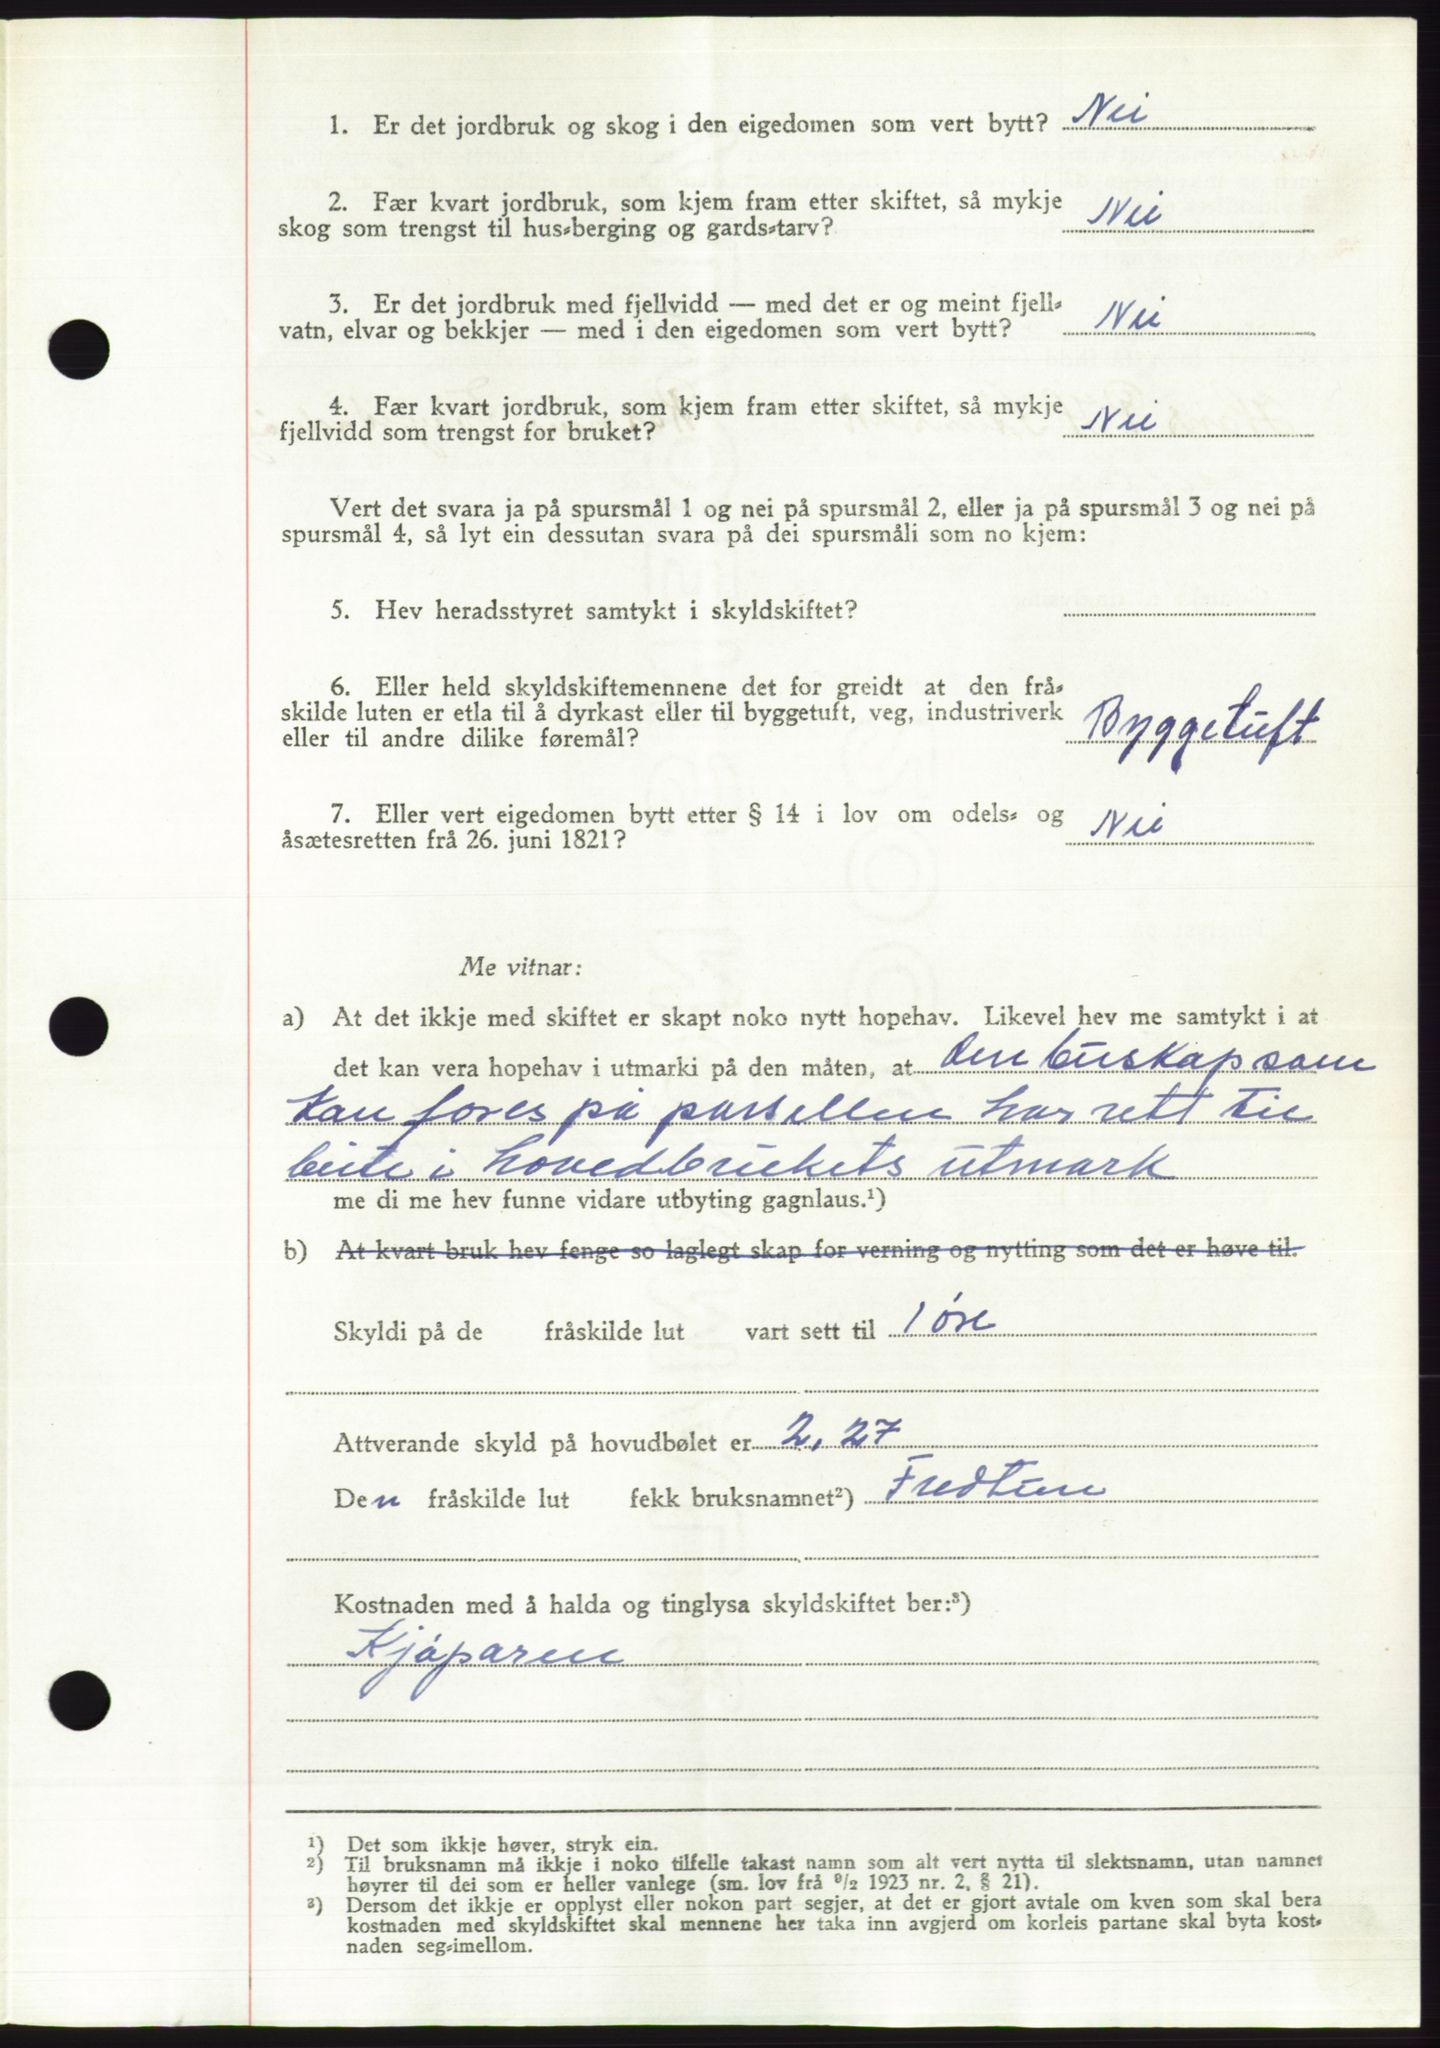 1. Er det jordbruk og skog i den eigedomen som vert bytt? Nei
2. Fær kvart jordbruk, som kjem fram etter skiftet, så mykje
skog som trengst til hus-berging og gards-tarv? Nei
3. Er det jordbruk med fjellvidd — med det er og meint fjell-
vatn, elvar og bekkjer — med i den eigedomen som vert bytt? Nei
4. Fær kvart jordbruk, som kjem fram etter skiftet, så mykje
fjellvidd som trengst for bruket? Nei
Vert det svara ja på spursmål 1 og nei på spursmål 2, eller ja på spursmål 3 og nei på
spursmål 4, så lyt ein dessutan svara på dei spursmåli som no kjem:
5. Hev heradsstyret samtykt i skyldskiftet?
6. Eller held skyldskiftemennene det for greidt at den frå-
skilde luten er etla til å dyrkast eller til byggetuft, veg, industriverk
eller til andre dilike føremål? Byggetuft
7. Eller vert eigedomen bytt etter § 14 i lov om odels- og
åsætesretten frå 26. juni 1821? Nei
Me vitnar:
a) At det ikkje med skiftet er skapt noko nytt hopehav. Likevel hev me samtykt i at
det kan vera hopehav i utmarki på den måten, at den buskap som
kan fores på parsellen har rett til
beite i hovedbrukets utmark
me di me hev funne vidare utbyting gagnlaus.¹)
b) At kvart bruk hev fenge so laglegt skap for verning og nytting som det er høve til.
Skyldi på de fråskilde lut vart sett til 1 øre
Attverande skyld på hovudbølet er 2,27
Den fråskilde lut fekk bruksnamnet²) Fredtun
Kostnaden med å halda og tinglysa skyldskiftet ber:³)
Kjøparen
¹) Det som ikkje høver, stryk ein.
²) Til bruksnamn må ikkje i noko tilfelle takast namn som alt vert nytta til slektsnamn, utan namnet
høyrer til dei som er heller vanlege (sm. lov frå ⁹/₂ 1923 nr. 2, § 21).
³) Dersom det ikkje er opplyst eller nokon part segjer, at det er gjort avtale om kven som skal bera
kostnaden med skyldskiftet skal mennene her taka inn avgjerd om korleis partane skal byta kost-
naden seg-imellom.